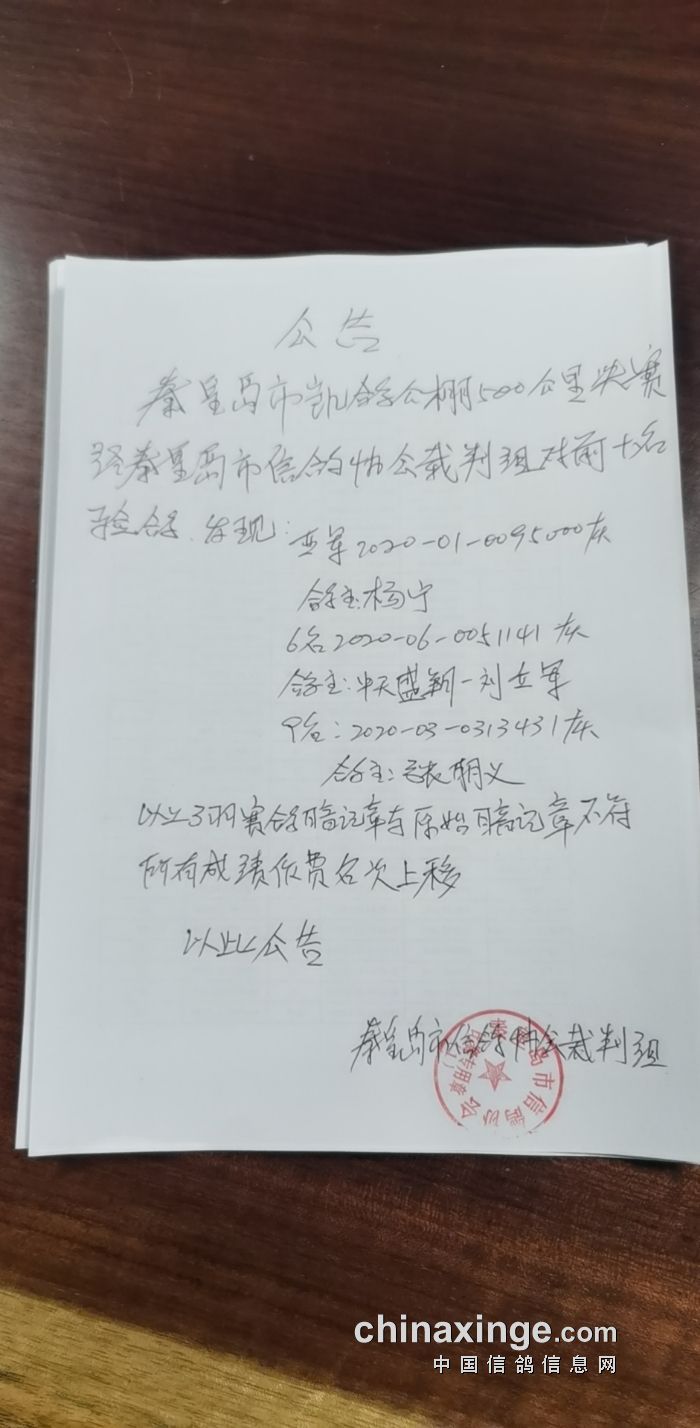 公告
秦皇岛市凯鸽公棚500公里决赛
经秦皇岛市信鸽协会裁判组对前十名
验鸽.发现:
亚军2020-01-0095000灰
鸽主:杨宁
6名2020-06-0051141灰
鸽主:中天盛翔-刘立军
9名:2020-03-0313431灰
鸽主:张朝义
以上3羽赛鸽暗记章与原始暗记章不符
所有成绩作费名次上移
以此公告
秦皇岛市信鸽协会裁判组
秦皇岛市信鸽协会
chinaxinge.com
中国信鸽信息网